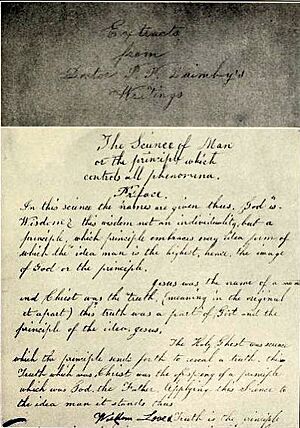 Extracts
from
Doctor P. P. Quimby's
Writings
The Science of Man
or the principle which
controls all phenomena.
Preface.
In this science the names are given thus, God is
Wisdom, this wisdom not an individuality but a
principle, which principle embraces every idea form of
which the idea man is the highest, hence the image
of God or the principle.
Jesus was the name of a man
and Christ was the truth, (meaning in the original
it apart) this truth was a part of God and the
principle of the idea; Jesus.
The Holy Ghost was science
which the principle sends forth to reveal a truth. this
Truth which was Christ was the offspring of a principle
which was God, the Father. Applying this science to
the idea man it stands thus
Wisdom Love & Truth is the principle